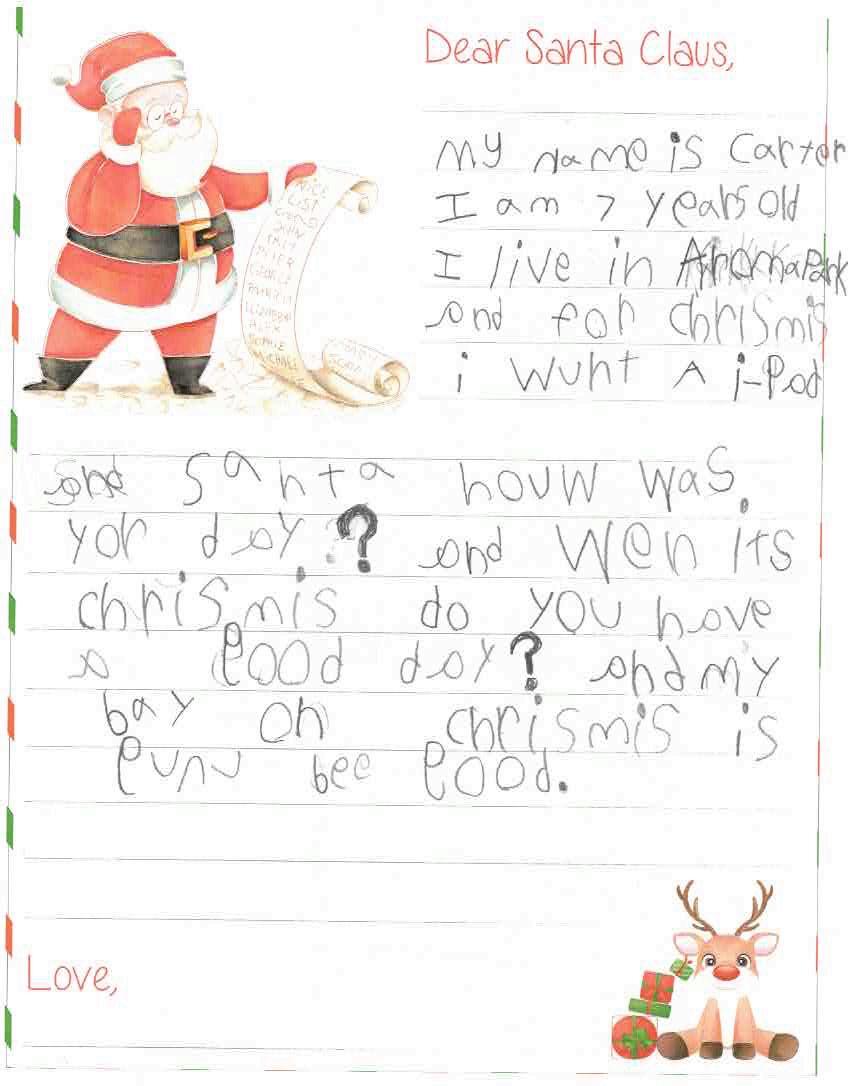 Dear Santa Claus,
My name is Carter
I am 7 years old
I live in AromaPark
and for chrismis
i wunt A i-Pod
and Santa houw was
yor day? and Wen its
chrismis do you have
a good day? and my
bay on chrismis is
gunu bee good.
Love,
NiCE
LiST
GEORGE
PATRICK
ELIZABETH
ALEX
SOPHIE
MICHAEL